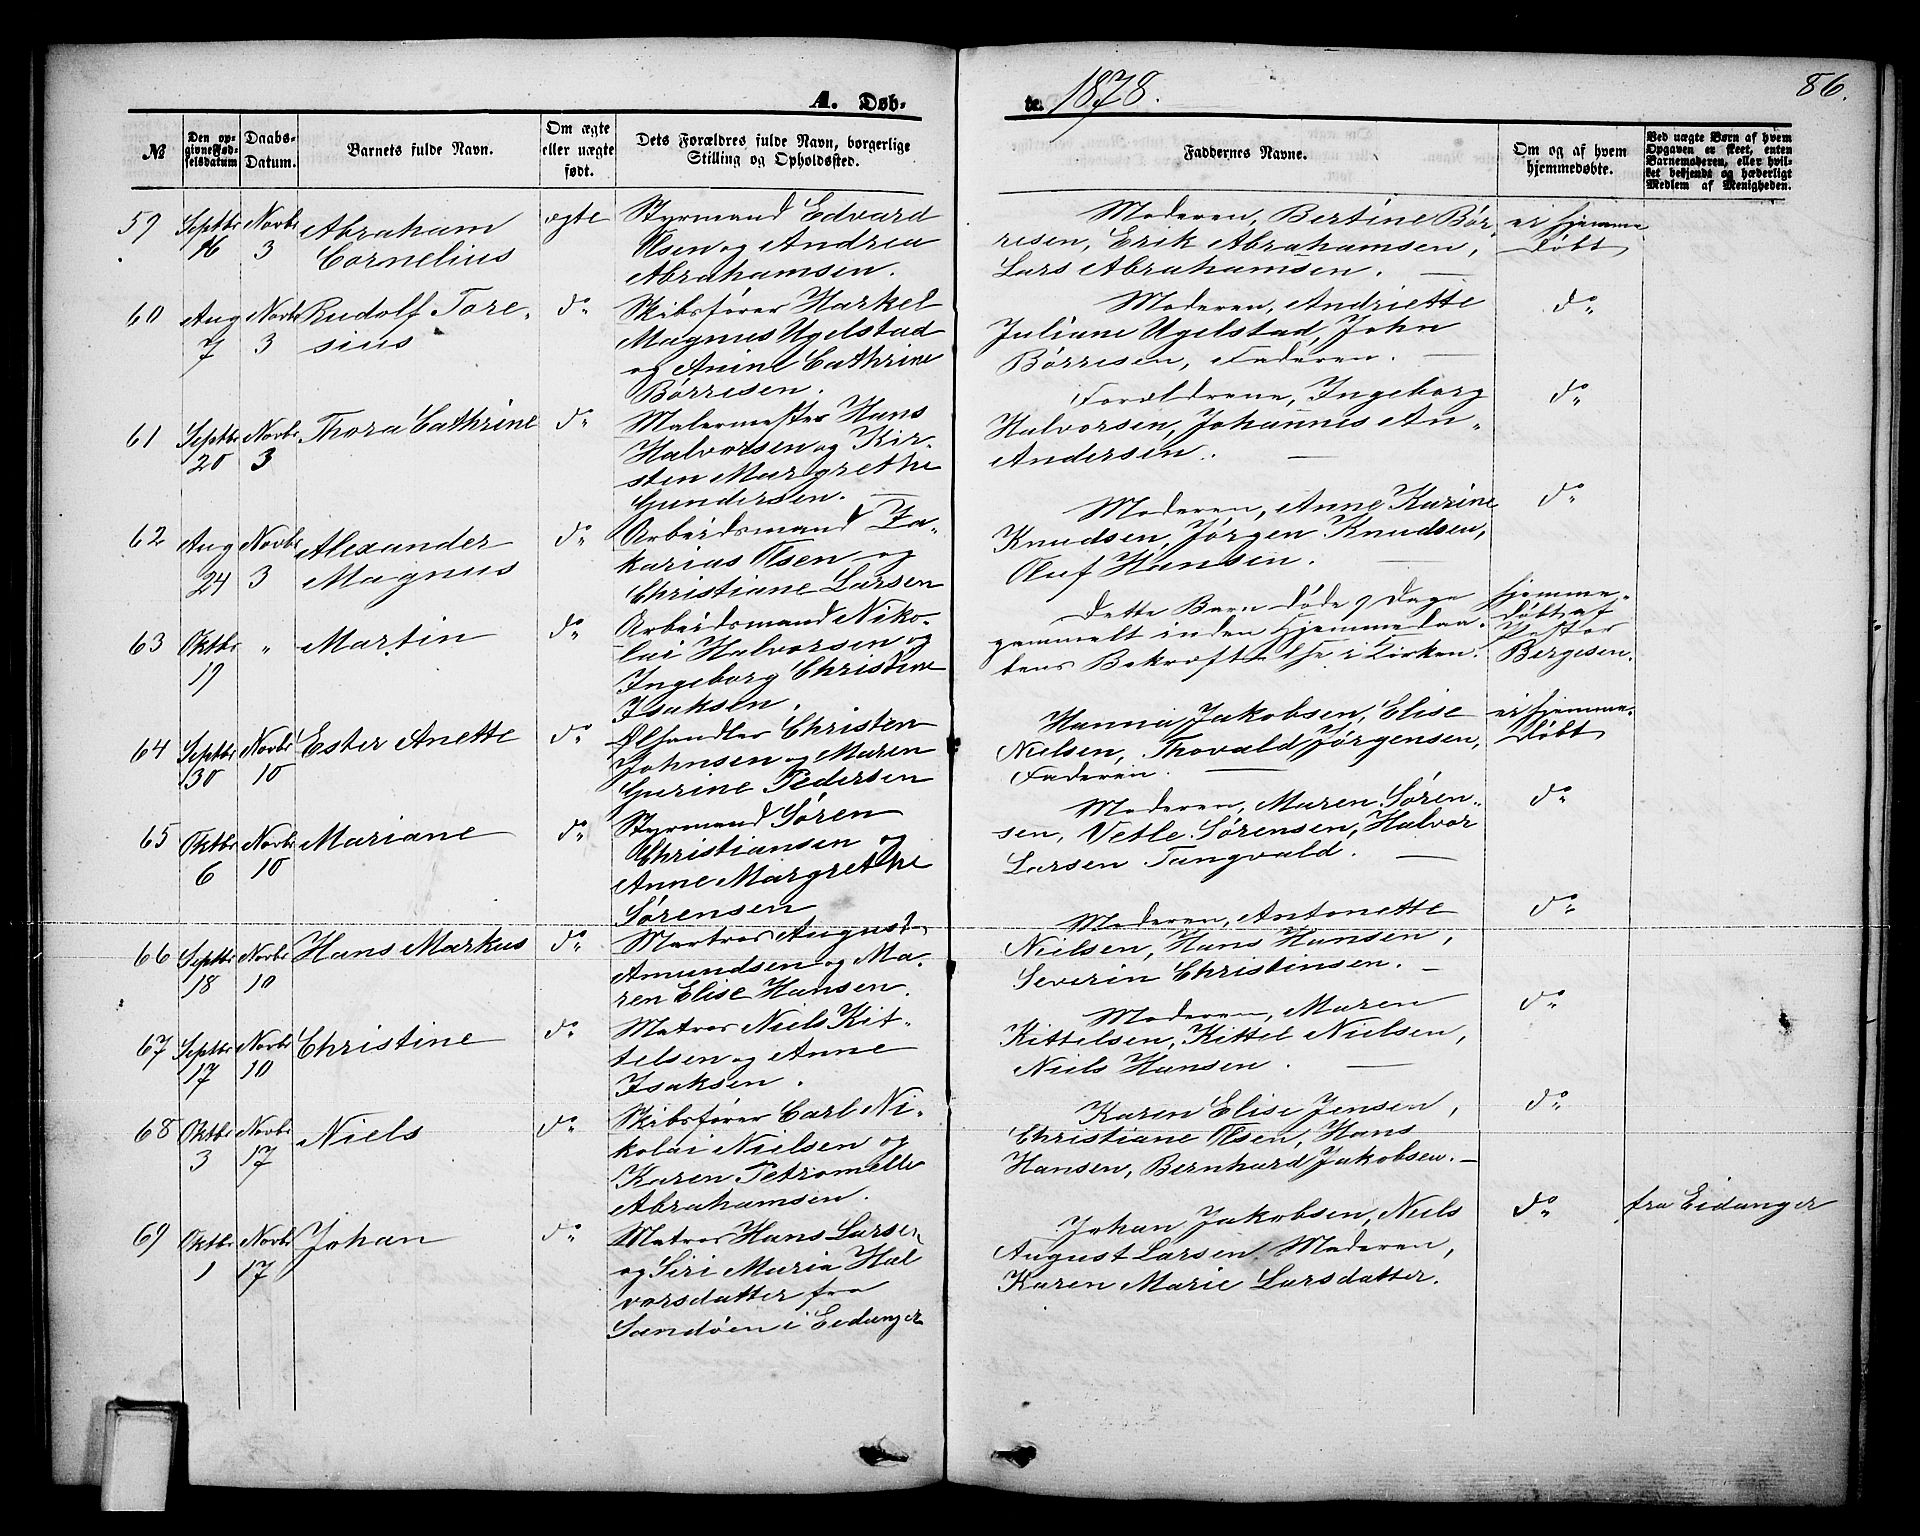 A. Døb-
te. 1878.
86.
№
Den op-
givne Fød-
selsdatum
Daabs-
Datum.
Barnets fulde Navn.
Om ægte
eller uægte
født.
Dets Forældres fulde Navn, borgerlige
Stilling og Opholdssted.
Faddernes Navne.
Om og af hvem
hjemmedøbte.
Ved uægte Børn af hvem
Opgaven er skeet, enten
Barnemoderen, eller hvil-
ket bekjendt og hæderligt
Medlem af Menigheden.
59
Septbr
16
Novbr
3
Abraham
Cornelius
ægte
Styrmand Edvard
Olsen og Andrea
Abrahamsen.
Moderen, Bertine Bør-
resen, Erik Abrahamsen,
Lars Abrahamsen.
ei hjemme
døbt
60
Aug
7
Novbr
3
Rudolf Tore-
sius
do
Skibsfører Harkel
Magnus Ugelstad
og Anine Cathrine
Børresen.
Moderen, Andriette
Juliane Ugelstad, John
Børresen, Faderen.
do
61
Septbr
20
Novbr
3
Thora Cathrine
do
Malermester Hans
Halvorsen og Kir-
sten Margrethe
Gundersen.
Forældrene, Ingeborg
Halvorsen, Johannes An-
Andersen.
do
62
Aug
24
Novbr
3
Alexander
Magnus
do
Arbeidsmand Za-
karias Olsen og
Christiane Larsen
Moderen, Anne Karine
Knudsen, Jørgen Knudsen,
Oluf Hansen.
do
63
Oktbr
19
"
Martin
do
Arbeidsmand Niko-
lai Halvorsen og
Ingeborg Christine
Isaksen.
Dette Barn døde 9 Dage
gammelt inden Hjemmedaa-
bens Bekræftelse i Kirken.
hjemme-
døbt af
Pastor
Bergesen.
64
Septbr
30
Novbr
10
Ester Anette
do
Ølhandler Christen
Johnsen og Maren
Gurine Pedersen
Hanna Jakobsen, Elise
Nielsen, Thovald Jørgensen,
Faderen.
ei hjemme-
døbt
65
Oktbr
6
Novbr
10
Mariane
do
Styrmand Søren
Christiansen og
Anne Margrethe
Sørensen
Moderen, Maren Søren-
sen, Vetle Sørensen, Halvor
Larsen Tangvald.
do
66
Septbr
18
Novbr
10
Hans Markus
do
Matros August
Amundsen og Ma-
ren Elise Hansen.
Moderen, Antonette
Nielsen, Hans Hansen,
Severin Christinsen.
do
67
Septbr
17
Novbr
10
Christine
do
Matros Niels Kit-
telsen og Anne
Isaksen.
Moderen, Maren
Kittelsen, Kittel Nielsen,
Niels Hansen.
do
68
Oktbr
3
Novbr
17
Niels
do
Skibsfører Carl Ni-
kolai Nielsen og
Karen Petromelle
Abrahamsen.
Karen Elise Jensen,
Christiane Olsen, Hans
Hansen, Bernhard Jakobsen.
do
69
Oktbr
1
Novbr
17
Johan
do
Matros Hans Larsen
og Siri Maria Hal
vorsdatter fra
Sandøen i Eidanger
Johan Jakobsen, Niels
August Larsen, Moderen,
Karen Marie Larsdatter.
do
fra Eidanger